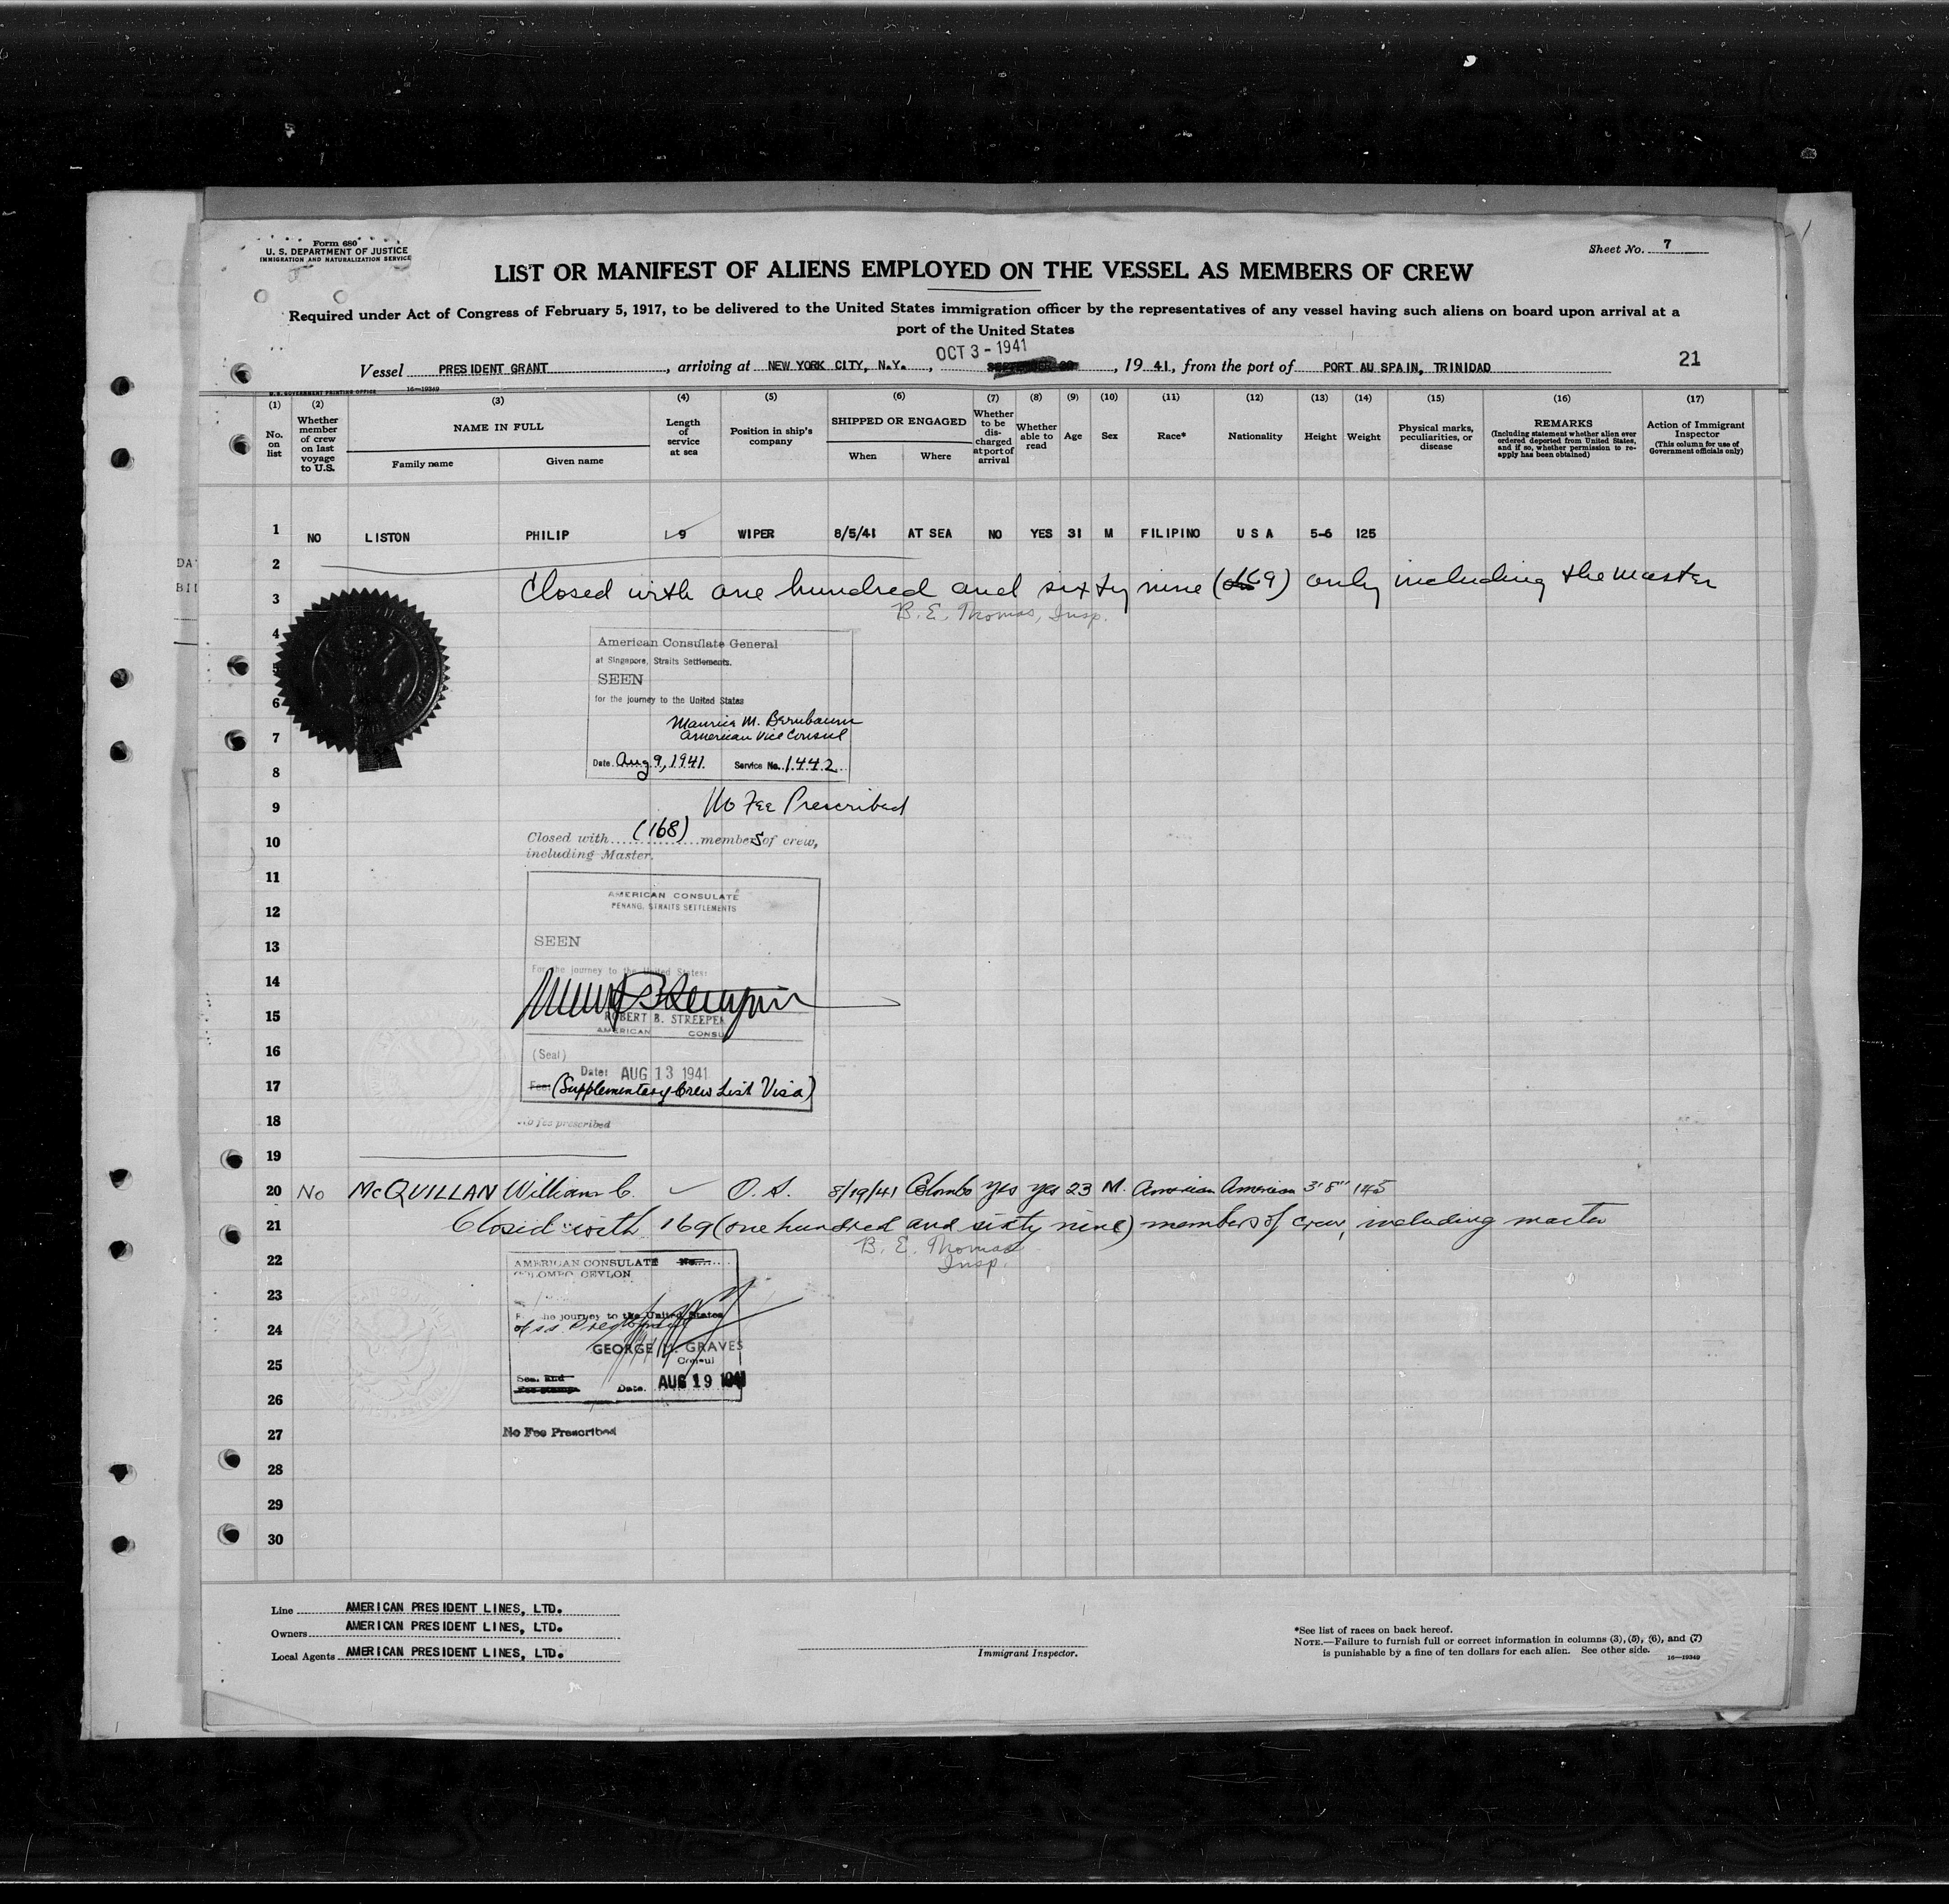 Form 680
U. S. DEPARTMENT OF JUSTICE
IMMIGRATION AND NATURALIZATION SERVICE
Sheet No. 7
LIST OR MANIFEST OF ALIENS EMPLOYED ON THE VESSEL AS MEMBERS OF CREW
Required under Act of Congress of February 5, 1917, to be delivered to the United States immigration officer by the representatives of any vessel having such aliens on board upon arrival at a
port of the United States
OCT 3 - 1941
Vessel PRESIDENT GRANT, arriving at NEW YORK CITY, N.Y., , 19 41, from the port of PORT AU SPAIN, TRINIDAD 21
U.S. GOVERNMENT PRINTING OFFICE 16—19349
(1) (2) (3) (4) (5) (6) (7) (8) (9) (10) (11) (12) (13) (14) (15) (16) (17)
No. on list
Whether member of crew on last voyage to U.S.
NAME IN FULL
Family name Given name
Length of service at sea
Position in ship's company
SHIPPED OR ENGAGED
When Where
Whether to be discharged at port of arrival
Whether able to read
Age
Sex
Race*
Nationality
Height
Weight
Physical marks, peculiarities, or disease
REMARKS
(Including statement whether alien ever ordered deported from United States, and if so, whether permission to reapply has been obtained)
Action of Immigrant Inspector
(This column for use of Government officials only)
1 NO LISTON PHILIP 9 WIPER 8/5/41 AT SEA NO YES 31 M FILIPINO U S A 5-6 125
2
3 Closed with one hundred and sixty nine (169) only including the master
B. E. Thomas, Insp.
4 American Consulate General
5 at Singapore, Straits Settlements.
SEEN
6 for the journey to the United States
7 Maurice M. Bernbaum
American Vice Consul
8 Date. Aug 9, 1941. Service No. 1442
9 No Fee Prescribed
10 Closed with (168) members of crew,
including Master.
11
AMERICAN CONSULATE
12 PENANG, STRAITS SETTLEMENTS
13 SEEN
For the journey to the United States:
14
15 ROBERT B. STREEPER
AMERICAN CONSUL
16 (Seal)
Date: AUG 13 1941
17 Fee: (Supplementary Crew List Visa)
18 No fee prescribed
19
20 No McQUILLAN William C. O.S. 8/19/41 Colombo yes yes 23 M. American American 3'8" 145
21 Closed with 169 (one hundred and sixty nine) members of crew, including master
B. E. Thomas
Insp.
22 AMERICAN CONSULATE No.
COLOMBO CEYLON
23
For the journey to the United States
24
GEORGE M. GRAVES
25 Consul
Seal and
Fee stamps Date. AUG 19 1941
26
27 No Fee Prescribed
28
29
30
Line AMERICAN PRESIDENT LINES, LTD.
Owners AMERICAN PRESIDENT LINES, LTD.
Local Agents AMERICAN PRESIDENT LINES, LTD.
Immigrant Inspector.
*See list of races on back hereof.
NOTE.—Failure to furnish full or correct information in columns (3), (5), (6), and (7)
is punishable by a fine of ten dollars for each alien. See other side.
16—19349
DA
BII